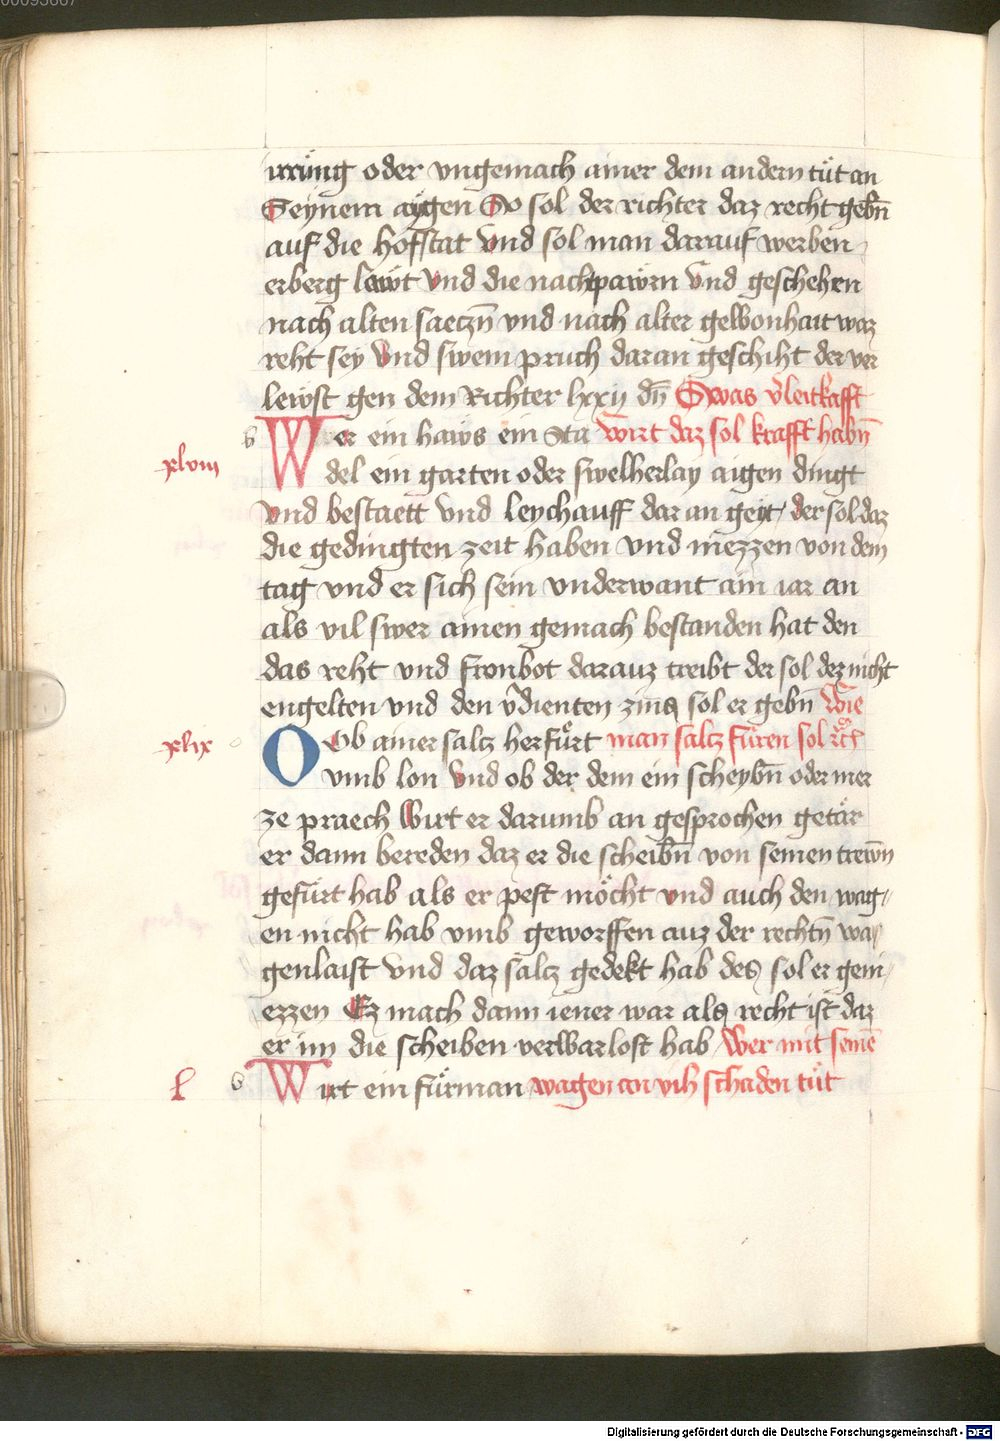 00095667
irrüng oder vngemach ainer dem andern tuͤt an
Seynem aygen So sol der richter daz recht gebn̄
auf die hofstat Vnd sol man darauf werben
erberg lewt Vnd die nachpawrn vnd geschehen
nach alten saeczn̄ vnd nach alter gewonhait waz
reht sey Vnd swem pruch daran geschiht der ver
lewst gen dem Richter lxxij dn̄ Swas v̄leitkafft
Wer ein haws ein Sta wirt daz sol krafft habn̄
xlviii
del ein garten oder swelherlay aigen dingt
Vnd bestaett Vnd leychauff dar an geyt, der sol daz
die gedingten zeit haben vnd niezzen von dem
tag vnd er sich sein vnderwant ain iar an
als vil swer ainen gemach bestanden hat den
das reht vnd fronbot darauz treibt der sol dez nicht
engelten vnd den v̄dienten zins sol er gebn̄ Wie
xlix
Ob ainer saltz herfuͤrt man saltz fuͤren sol
vmb lon Vnd ob der dem ein scheybn̄ oder mer
ze praech Wirt er darumb an gesprochen getar
er dann bereden daz er die scheibn̄ von seinen trewn̄
gefuͤrt hab als er pest moͤcht vnd auch den wag,
en nicht hab vmb geworffen auz der rechtn̄ wa,
genlaist Vnd daz saltz gedekt hab des sol er geni,
ezzen Ez mach dann iener war als recht ist daz
er im die scheiben verwarlost hab Wer mit seinē
l
Wirt ein fuͤrman wagen an vih schaden tuͤt
Digitalisierung gefördert durch die Deutsche Forschungsgemeinschaft - DFG